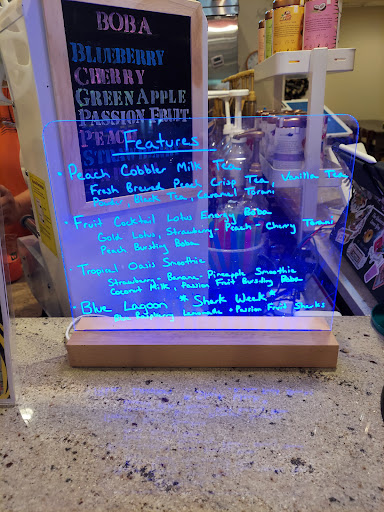 BOBA
BLUEBERRY
CHERRY
GREEN APPLE
PASSION FRUIT
PEACH
Features
• Peach Cobbler Milk Tea
Fresh Brewed Peach Crisp Tea, Vanilla Tea
Powder, Black Tea, Caramel Torani
• Fruit Cocktail Lotus Energy Boba
Gold Lotus, Strawberry - Peach - Cherry Torani
Peach Bursting Boba
• Tropical Oasis Smoothie
Strawberry - Banana - Pineapple Smoothie
Coconut Milk, Passion Fruit Bursting Boba
• Blue Lagoon *Shark Week*
Raspberry Lemonade + Passion Fruit Sharks